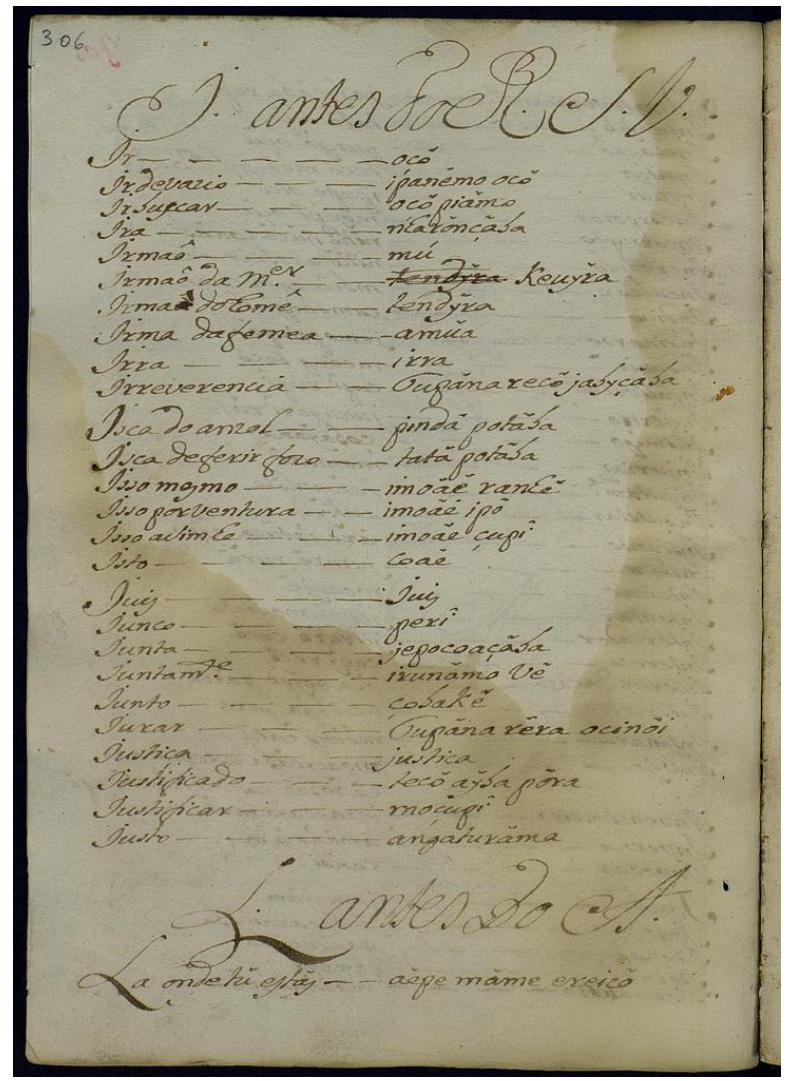 306
J. antes do R. S. V.
Ir — — — — — ocô
Ir de vazio — — — ipanẽmo ocô
Ir buscar — — — ocô piãmo
Ira — — — — —
Irmaõ — — — — mú
Irmaõ da M.er — — tendỹra Keuỹra
Irmaã do homẽ — — tendỹra
Irma da femea — — amũa
Irra — — — — irra
Irreverencia — — — Tupãna recô jabyçãba
Isca do anzol — — — pindâ potãba
Isca de ferir fogo — — tatâ potãba
Isso mesmo — — — imoãé ranhẽ
Isso por ventura — — imoãe ipô
Isso assim he — — — imoãe çupî
Isto — — — — — coaé
Juiz — — — — — Juiz
Junco — — — — perî
Junta — — — — jepocoaçãba
Juntam.te — — — irunãmo vê
Junto — — — — cobakê
Jurar — — — — Tupãna rẽra ocinõi
Justiça — — — — justiça
Justificado — — — tecô aỹba põra
Justificar — — — moçupî
Justo — — — — angaturãma
L. antes do A.
La onde tũ estâs — — aépe mãme ereicô